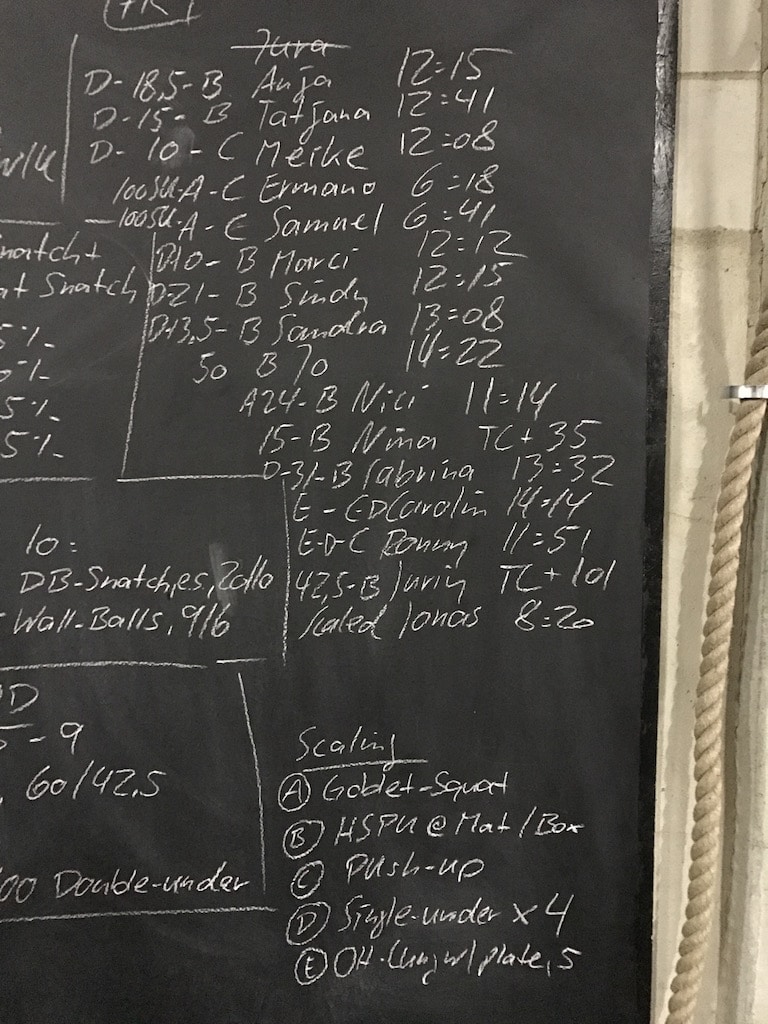 Jura
D-18,5-B Anja 12:15
D-15-B Tatjana 12:41
D-10-C Meike 12:08
100SU-A-C Ermano 6:18
100SU-A-C Samuel 6:41
D-10-B Marci 12:12
D-21-B Sindy 12:15
D-13,5-B Sandra 13:08
50 B Jo 14:22
A24-B Nici 11:14
15-B Nina TC+35
D-31-B Sabrina 13:32
E-ED Carolin 14:14
E-D-C Ronny 11:51
42,5-B Juriy TC+101
Scaled Jonas 8:20
at Snatch
5%
5%
5%
10:
DB-Snatches, 20/10
Wall-Balls, 9/6
-9
60/42,5
00 Double-under
Scaling
A Goblet-Squat
B HSPU @ Mat/Box
C Push-up
D Single-under x4
E OH-Lung w/plate, 5